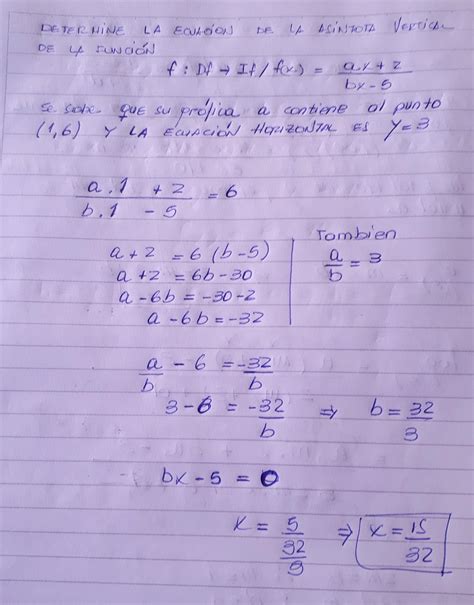 DETERMINE LA ECUACION DE LA ASINTOTA VERTICAL
DE LA FUNCIÓN
f : Df → If / f(x) = ax + 2 / bx - 5
Se sabe que su gráfica a contiene al punto
(1,6) Y LA ECUACIÓN HORIZONTAL ES Y = 3
a.1 + 2 / b.1 - 5 = 6
Tambien
a + 2 = 6 (b - 5)
a/b = 3
a + 2 = 6b - 30
a - 6b = -30 - 2
a - 6b = -32
a/b - 6 = -32/b
3 - 6 = -32/b ⇒ b = 32/3
bx - 5 = 0
x = 5 / 32/3 ⇒ x = 15/32